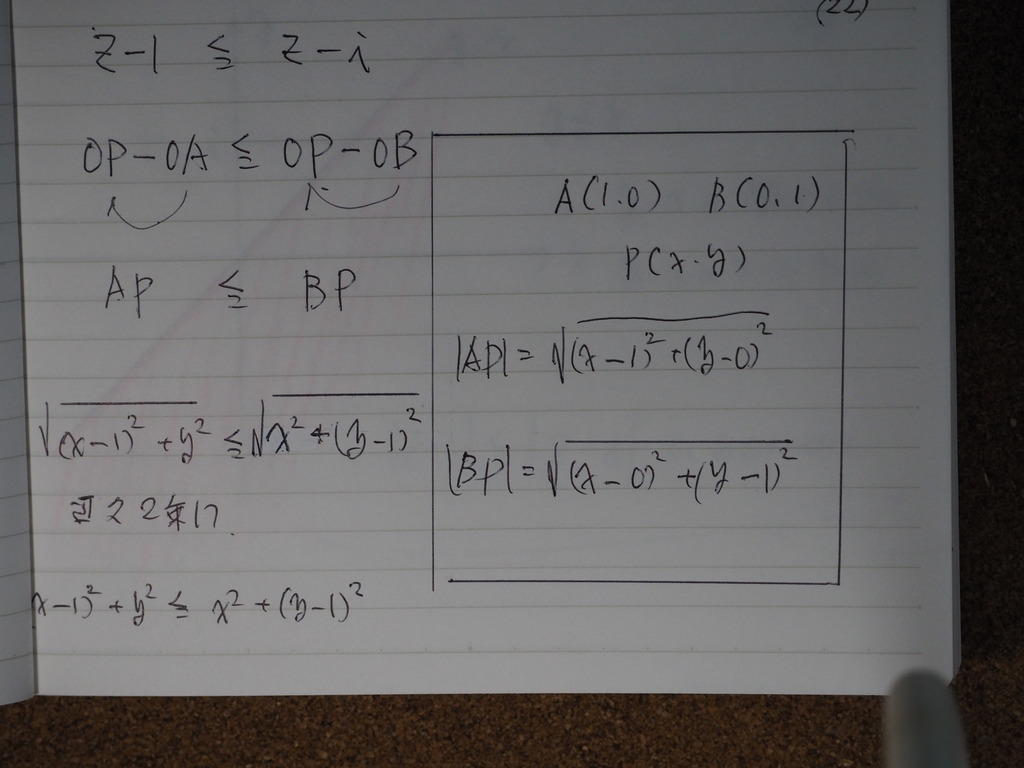 (22)
z-1 ≦ z-i
OP-OA ≦ OP-OB
AP ≦ BP
√(x-1)²+y² ≦ √x²+(y-1)²
x-1)²+y² ≦ x²+(y-1)²
A(1.0) B(0.1)
P(x.y)
|AP|=√(x-1)²+(y-0)²
|BP|=√(x-0)²+(y-1)²